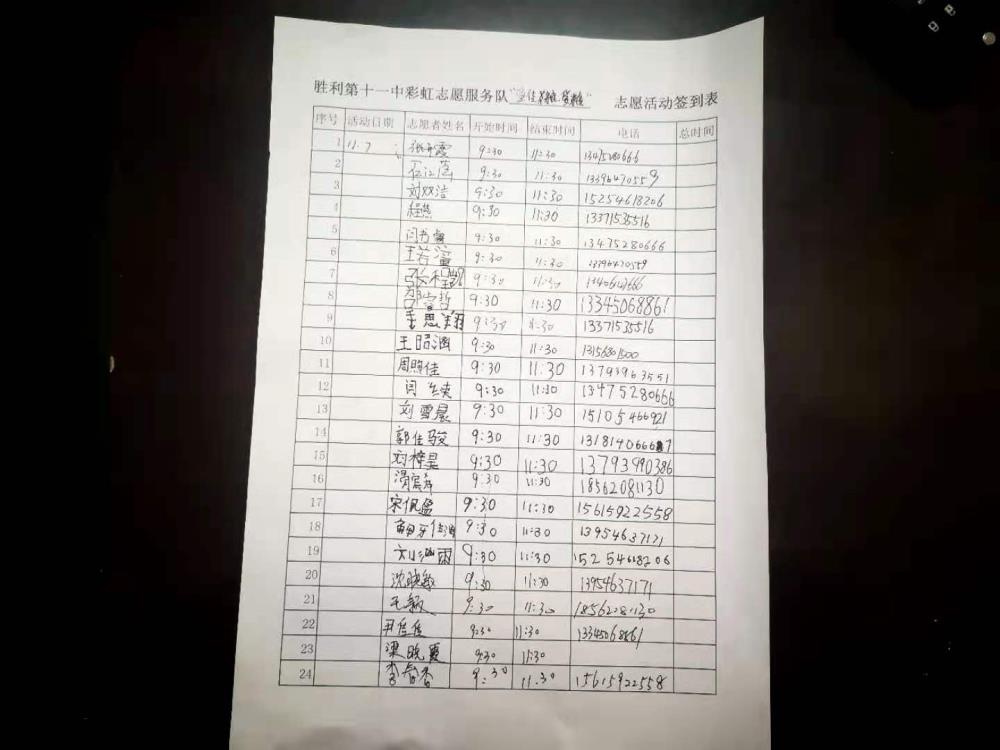 胜利第十一中彩虹志愿服务队" " 志愿活动签到表
序号 活动日期 志愿者姓名 开始时间 结束时间 电话 总时间
1 11.7 9:30 11:30 13475280666
2 9:30 11:30 13396470559
3 刘双洁 9:30 11:30 15254618206
4 程燕 9:30 11:30 13371535516
5 闫书 9:30 11:30 13475280666
6 王若 9:30 11:30 13396470559
7 张程凯 9:30 11:30
8 邵宣哲 9:30 11:30 13345068861
9 思翔 9:30 11:30 13371535516
10 王昭涵 9:30 11:30
11 周照佳 9:30 11:30 13793963551
12 闫 9:30 11:30 13475280666
13 刘雪晨 9:30 11:30 15105466921
14 郭佳骏 9:30 11:30
15 刘梓昊 9:30 11:30 13793990386
16 9:30 11:30 18562081130
17 宋佩盈 9:30 11:30 15615922558
18 9:30 11:30 13954637171
19 刘 雨 9:30 11:30 15254618206
20 沈晓敏 9:30 11:30 13954637171
21 王颖 9:30 11:30 18562081130
22 尹佳佳 9:30 11:30 13345068861
23 梁晓霞 9:30 11:30
24 李智香 9:30 11:30 15615922558